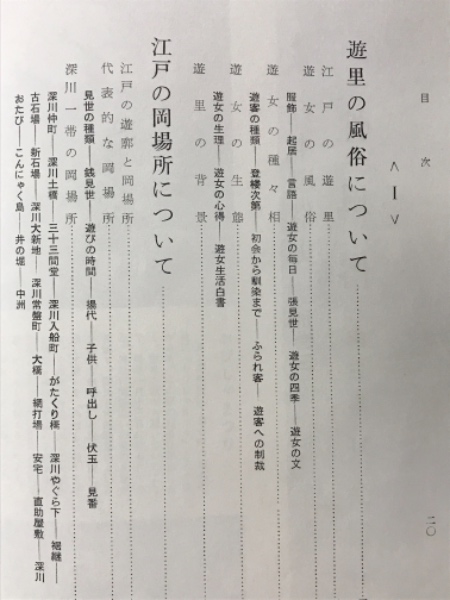 目次
二〇
＜Ⅰ＞
遊里の風俗について
江戸の遊里
遊女の風俗
服飾――起居 言語――遊女の毎日――張見世――遊女の四季――遊女の文
遊女の種々相
遊客の種類――登楼次第――初会から馴染まで――ふられ客――遊客への制裁
遊女の生態
遊女の生理――遊女の心得――遊女生活白書
遊里の背景
江戸の岡場所について
江戸の遊廓と岡場所
代表的な岡場所
見世の種類――銭見世――遊びの時間――揚代 子供 呼出し 伏玉――見番
深川一帯の岡場所
深川仲町――深川土橋――三十三間堂――深川入船町――がたくり橋――深川やぐら下――裾継――
古石場 新石場――深川大新地 深川常盤町――大橋――網打場――安宅――直助屋敷――深川
おたび――こんにゃく島――井の堀 中洲